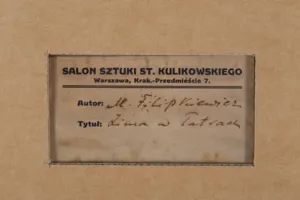 SALON SZTUKI ST. KULIKOWSKIEGO
Warszawa, Krak.-Przedmieście 7.
Autor: M. Filipkiewicz
Tytuł: Zima w Tatrach